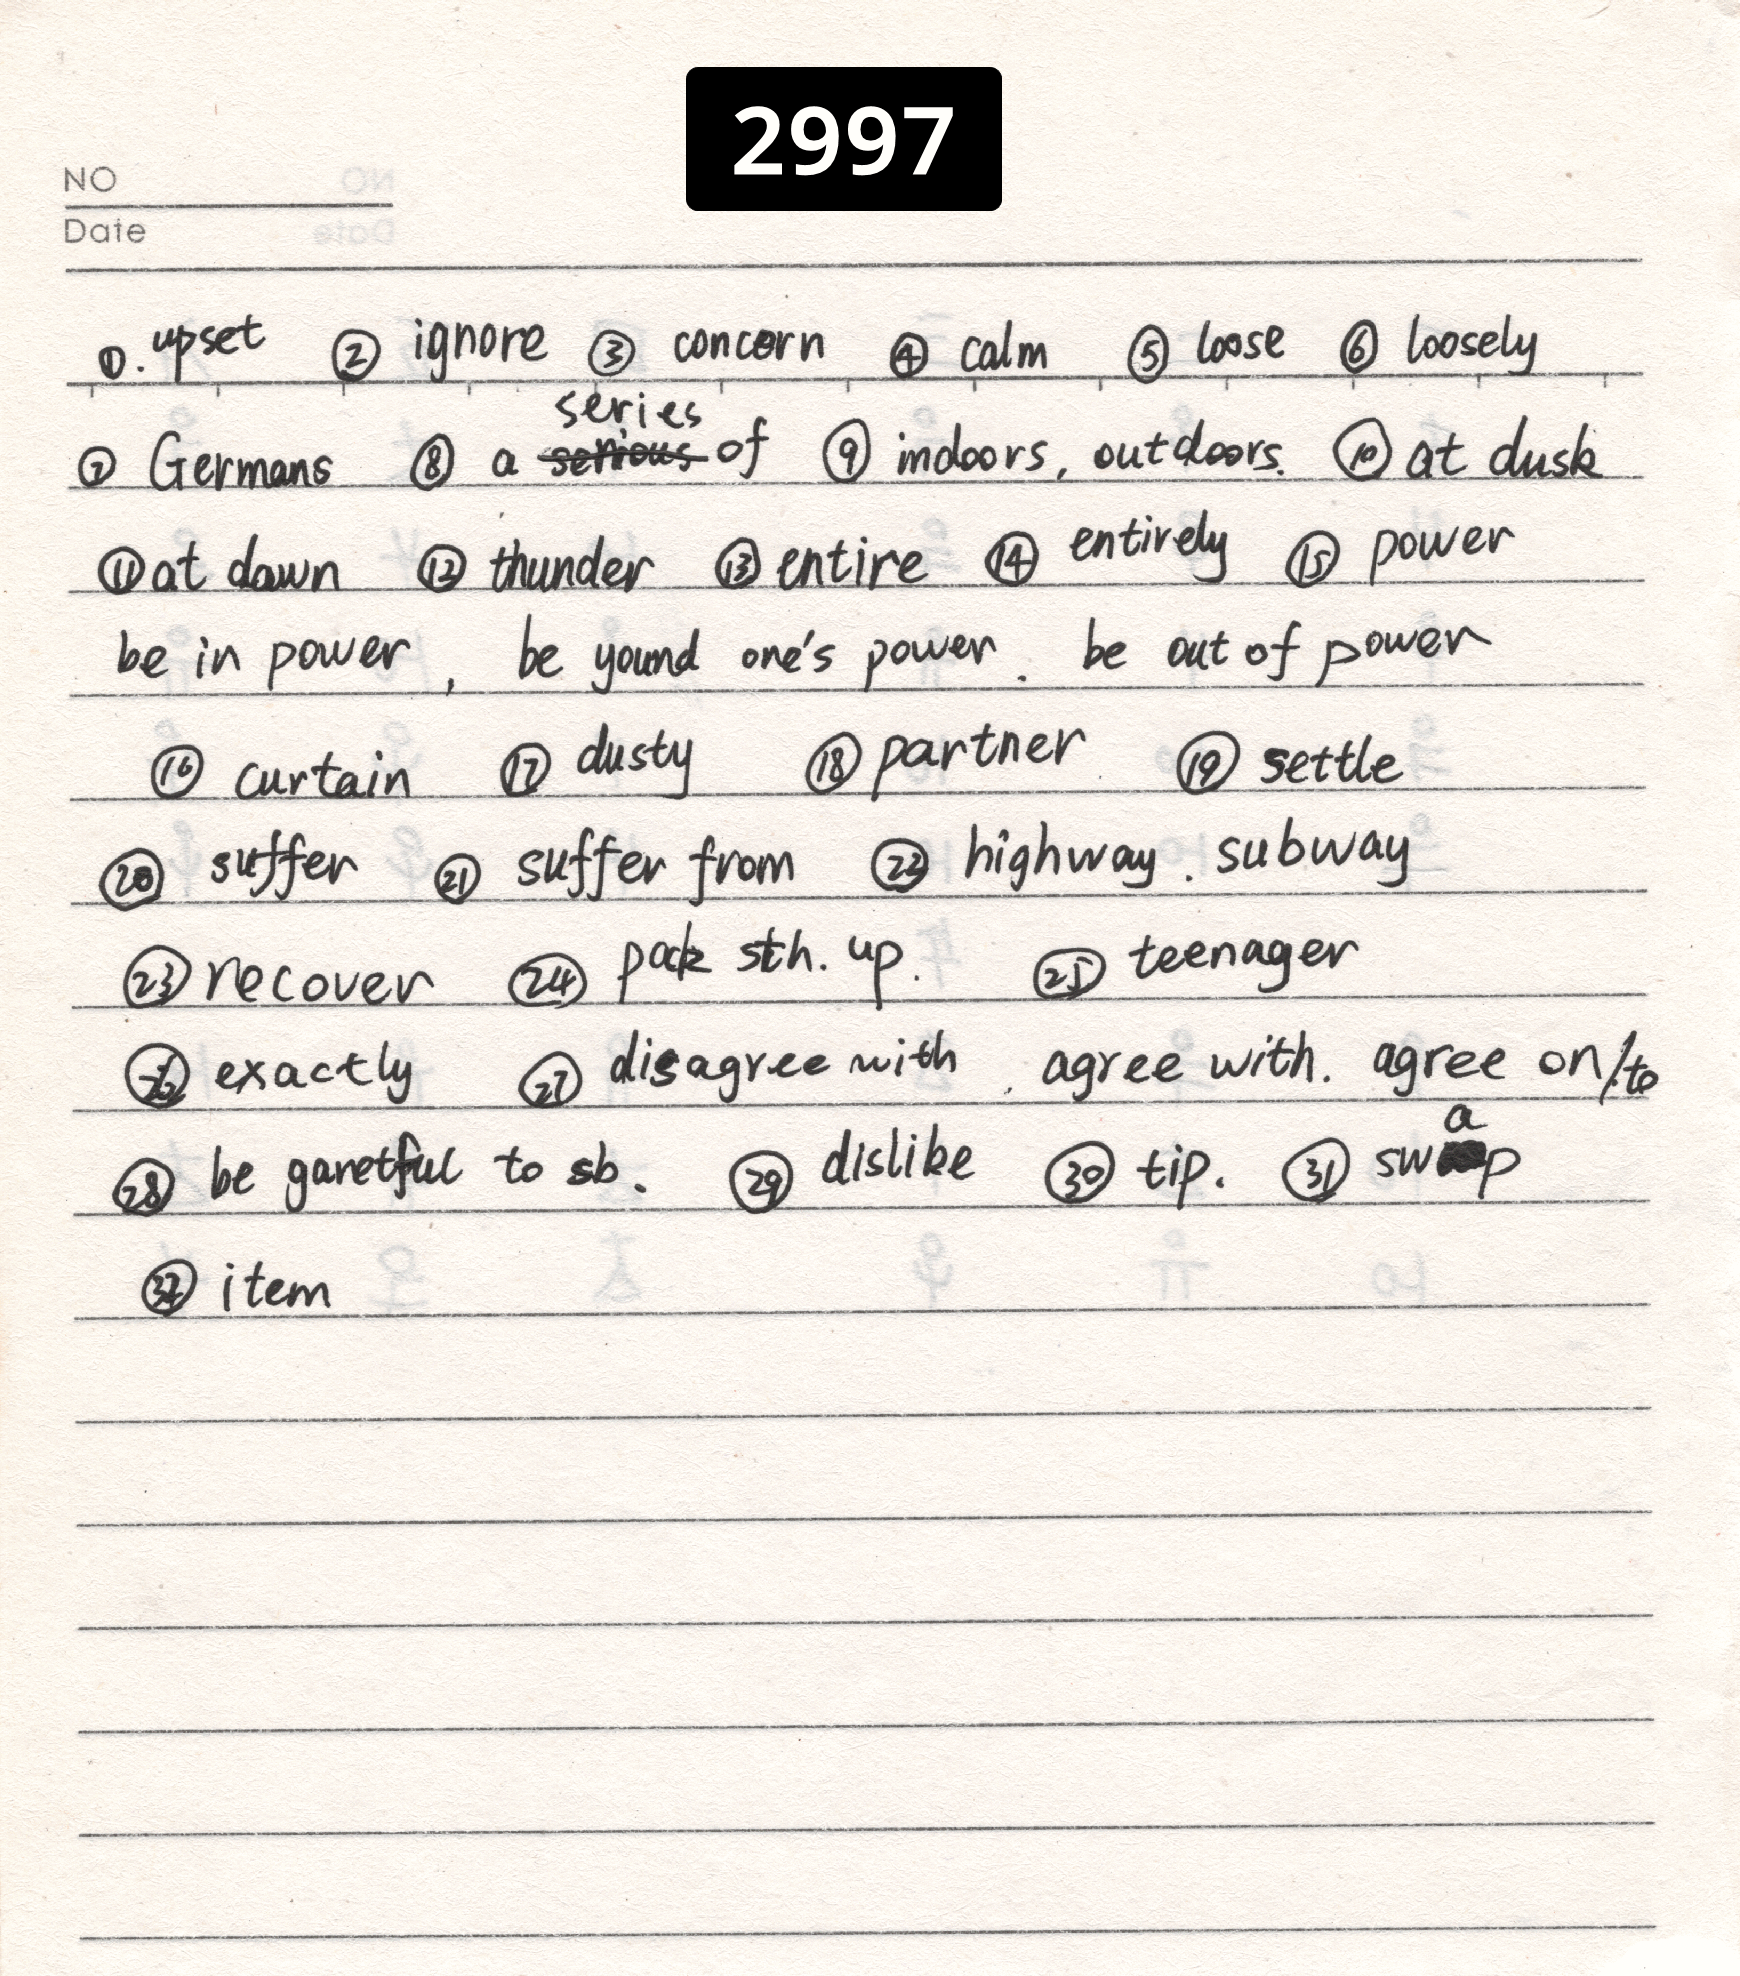 2997
NO
Date
①. upset ② ignore ③ concern ④ calm ⑤ loose ⑥ loosely
⑦ Germans ⑧ a series of ⑨ indoors, outdoors. ⑩ at dusk
⑪ at dawn ⑫ thunder ⑬ entire ⑭ entirely ⑮ power
be in power, be yound one's power. be out of power
⑯ curtain ⑰ dusty ⑱ partner ⑲ settle
⑳ suffer ㉑ suffer from ㉒ highway. subway
㉓ recover ㉔ pack sth. up. ㉕ teenager
㉖ exactly ㉗ disagree with. agree with. agree on/to
㉘ be garetful to sb. ㉙ dislike ㉚ tip. ㉛ swap
㉜ item